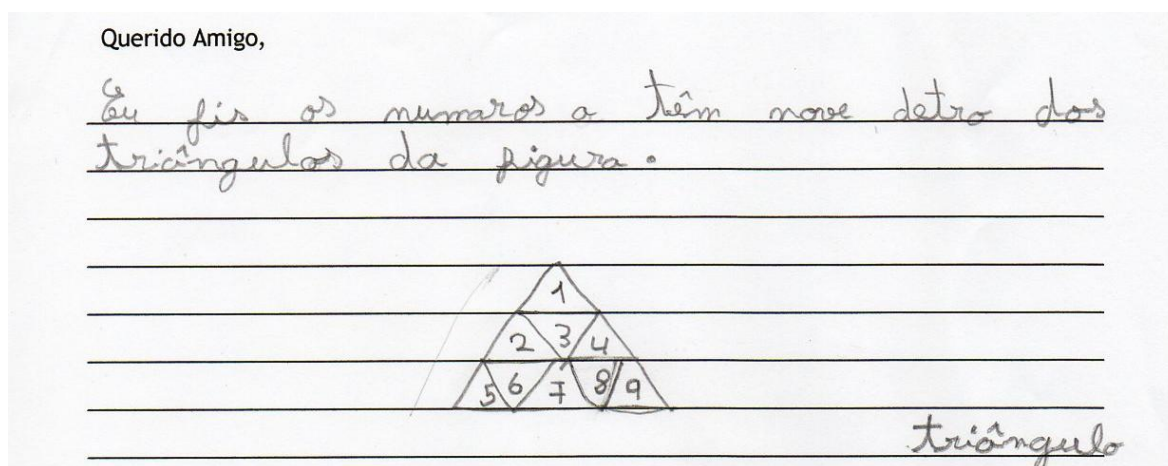 Querido Amigo,
Eu fis os numaros a têm nove detro dos
triângulos da figura.
1
2 3 4
5 6 7 8 9
triângulo